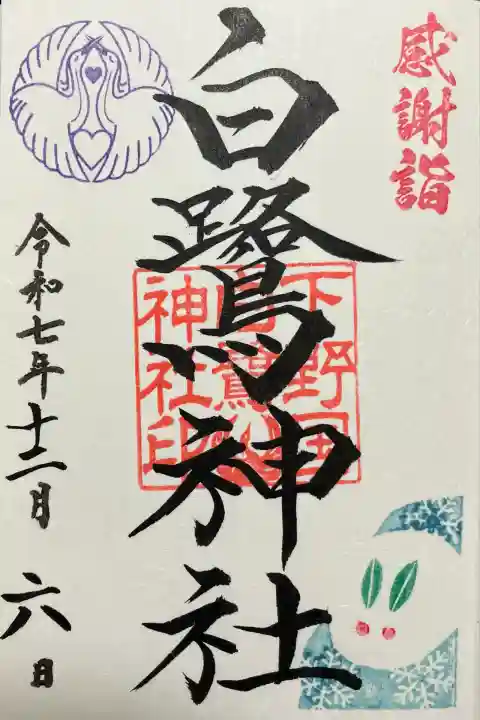 感謝詣
白鷺神社
下野国
白鷺山
神社印
令和七年十二月 六日